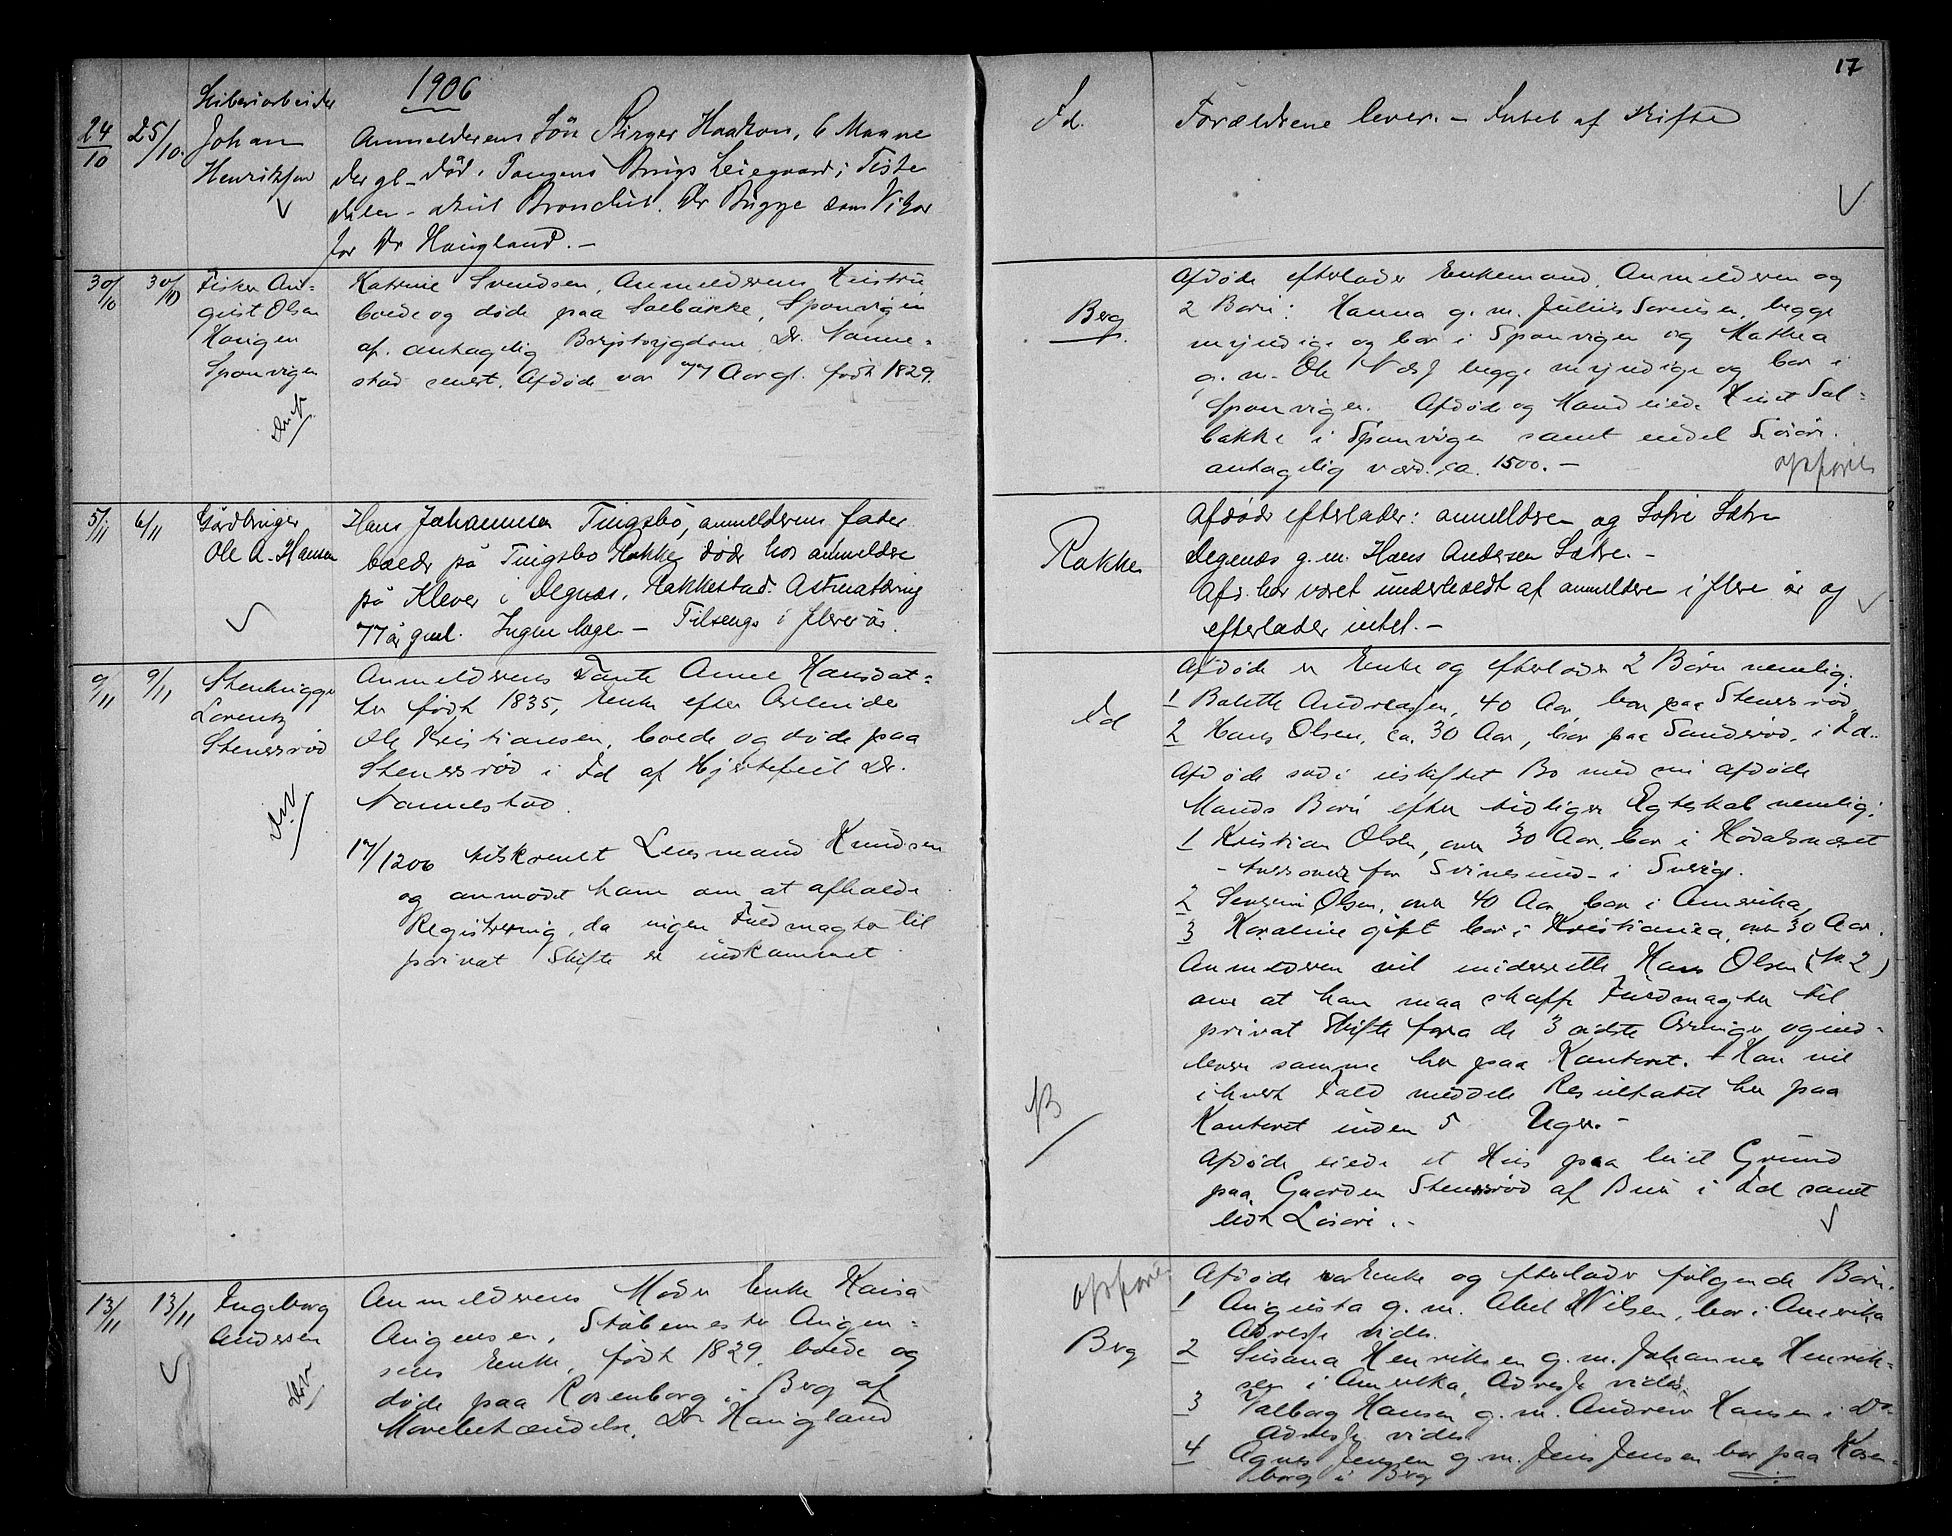 1906
17
24/10 25/10
Sliberiarbeider
Johan
Henriksen
Anmelderens Søn Birger Haakon, 6 Maane
der gl. død i Tangens Brugs Leiegaard i Tiste
dalen - akut Bronchit. Dr Bugge som Vikar
for Dr Haugland. -
Id.
Forældrene lever. - Intet af skifte
30/10 30/10
Fisker Au-
gust Olsen
Haugen
Sponvigen
Katrine Svendsen, Anmelderens Hustru
boede og døde paa Solbakke, Sponvigen
af antagelig Brystsygdom. Dr. Nanne-
stad senest. Afdøde var 77 Aar gl. født 1829.
Berg
Afdøde efterlader Enkemand, Anmelderen og
2 Børn: Hanna g. m. Julius Sørensen, begge
myndige og bor i Sponvigen og Mathea
g. m. Ole Næss begge myndige og bor i
Sponvigen. Afdøde og Mand eiede Huset Sol-
bakke i Sponvigen samt endel Løsøre.
antagelig værd. ca. 1500. -
opføres
5/11 6/11
Gårdbruger
Ole A. Hansen
Hans Johannesen Tingsbø, anmelderens fader
boede på Tingsbø Rakke, døde hos anmelder
på Klever i Degnæs, Rakkestad. Astmatæring
77 år gml. Ingen læge - Tilsengs i flere år.
Rakke
Afdøde efterlader: anmelderen og Sofie Sætre
Degenæs g.m. Hans Andersen Sætre. -
Afd. har været underholdt af anmelderen i flere år og
efterlader intet. -
9/11 9/11
Stenhugger
Lorentz
Stenssrød
Anmelderens Tante Anne Hansdat-
ter født 1835, Enke efter Arbeider
Ole Kristiansen, boede og døde paa
Stenssrød i Id af Hjertefeil Dr.
Nannestad.
17/12 06 tilskrevet Lensmand Knudsen
og anmodet ham om at afholde
Registrering, da ingen Fuldmagter til
privat Skifte er indkommet
Id
Afdøde er Enke og efterlader 2 Børn nemlig:
1 Bolette Andreasen, 40 Aar bor paa Stenssrød
2 Hans Olsen, ca. 30 Aar, bor paa Sanderød, i Id..
Afdøde sad i uskiftet Bo med sin afdøde
Mands Børn efter tidligere Egteskab nemlig:
1 Kristian Olsen, over 30 Aar, bor i Hødalsnæset
- tversover for Svinesund - i Sverige.
2 Severin Olsen, over 40 Aar bor i Amerika,
3 Karoline gift bor i Kristiania, over 30 Aar.
Anmelderen vil underrette Hans Olsen (No 2)
om at han maa skaffe Fuldmagter til
privat Skifte fra de 3 sidste Arvinger og ind-
levere samme her paa Kontoret. + Han vil
i hvert Fald meddele Resultatet her paa
Kontoret inden 5 Uger. -
Afdøde eiede et Hus paa leiet Grund
paa Gaarden Stenssrød af Buer i Id samt
lidt Løsøre. -
13/11 13/11
Ingeborg
Andersen
Anmelderens Moder Enke Kaisa
Augensen, Støbemester Augen-
sens Enke, født 1829, boede og
døde paa Rosenborg i Berg af
Mavebetændelse. Dr Haugland
opføres
Berg
Afdøde var Enke og efterlader følgende Børn.
1 Augusta g. m. Abel Nilsen, bor i Amerika
Adresse vides.
2 Susana Henriksen g. m. Johannes Henrik-
sen i Amerika, Adresse vides.
3 Valborg Hansen g. m. Andrew Hansen i Do
Adresse vides
4 Agnes Jensen g. m. Jens Jensen bor paa Rosen-
borg i Berg